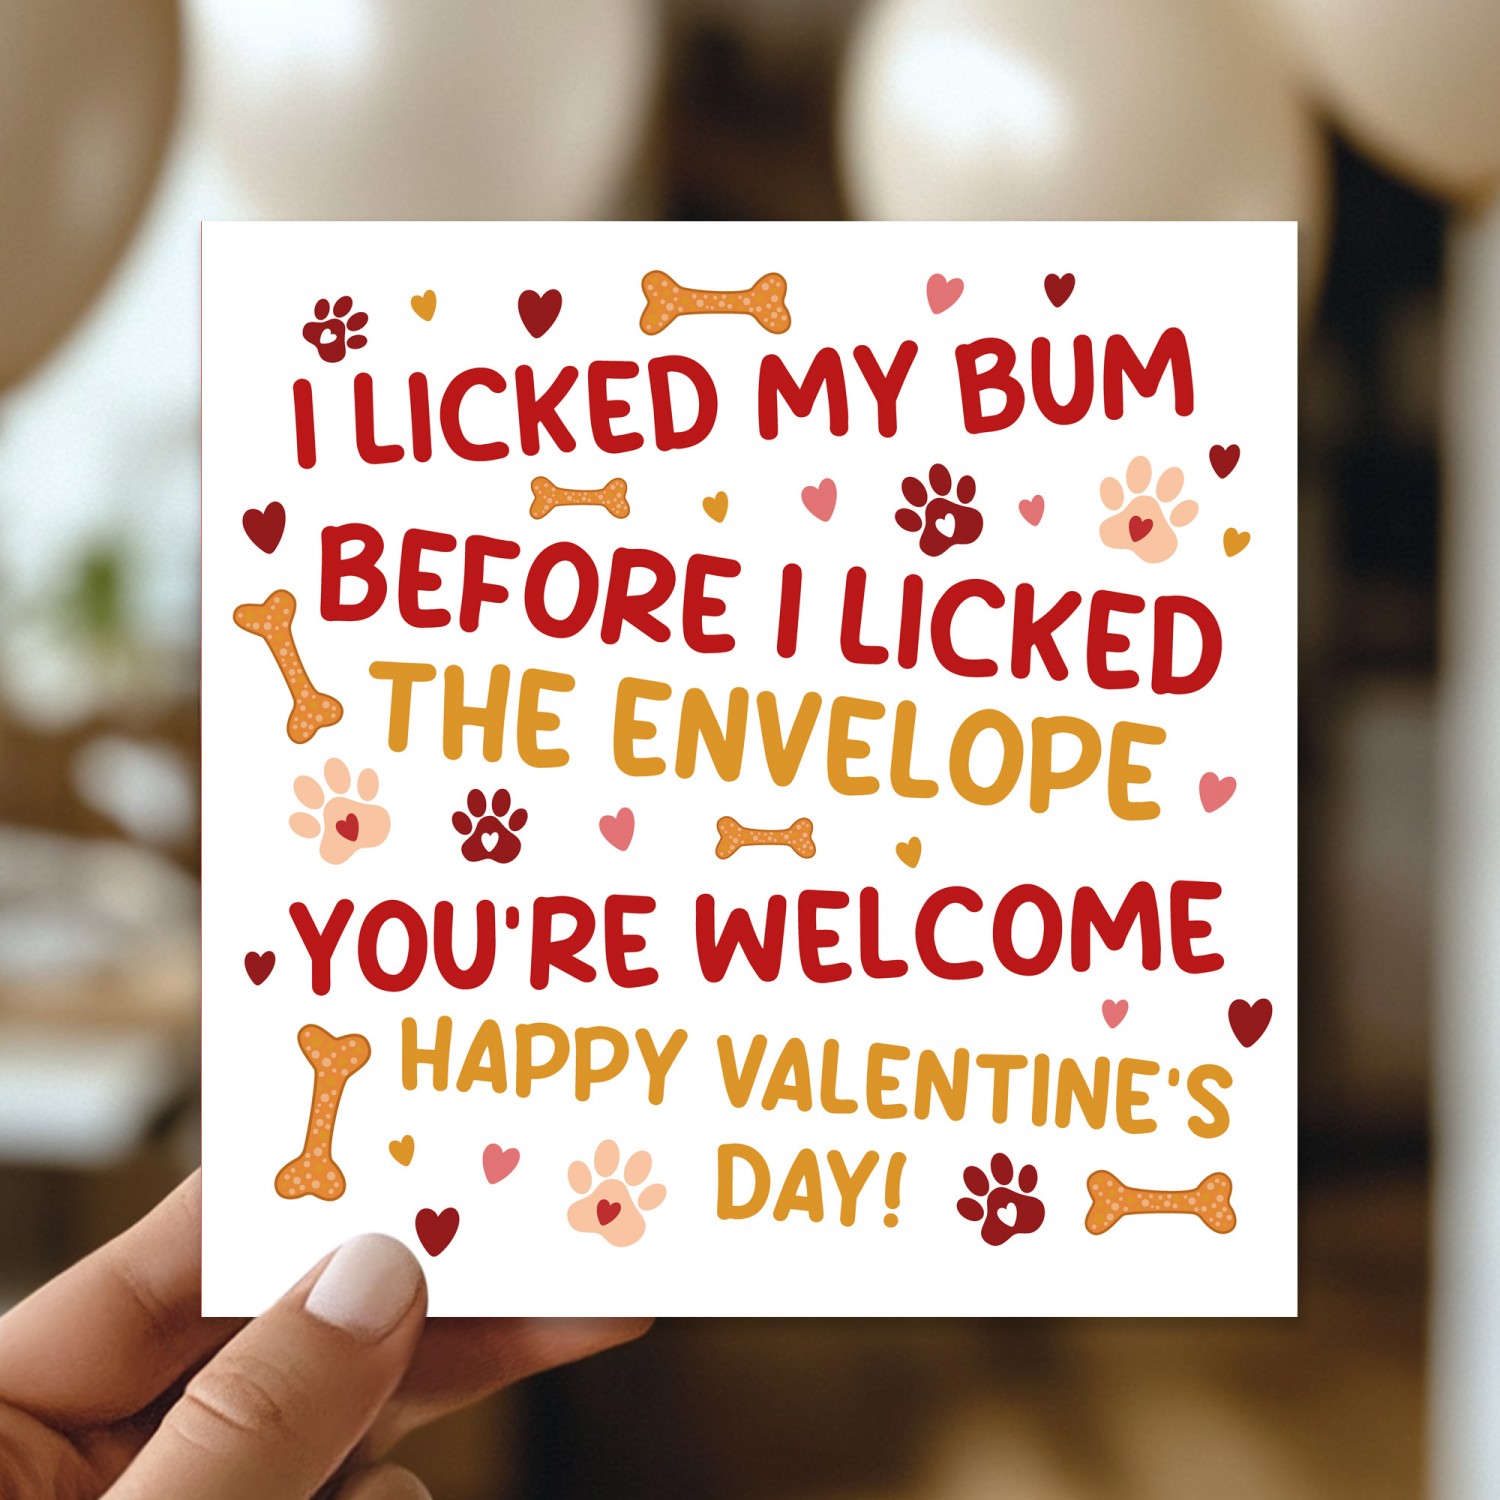 I LICKED MY BUM
BEFORE I LICKED
THE ENVELOPE
YOU'RE WELCOME
HAPPY VALENTINE'S
DAY!